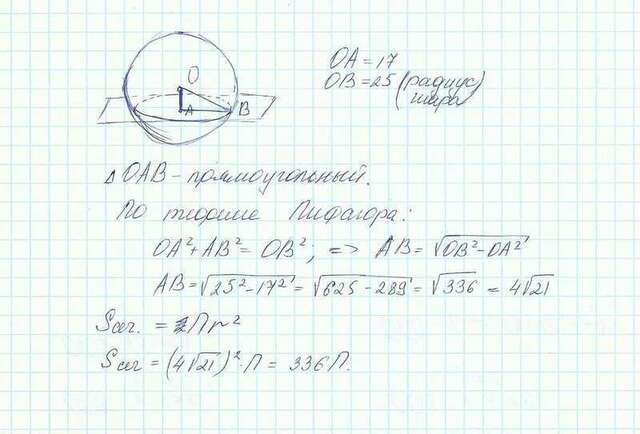 O
A
B
OA = 17
OB = 25 (радиус
шара)
Δ OAB - прямоугольный.
По теореме Пифагора:
OA² + AB² = OB²; => AB = √OB² - OA²
AB = √25² - 17² = √625 - 289 = √336 = 4√21
Sсеч. = Пr²
Sсеч = (4√21)² · П = 336 П.